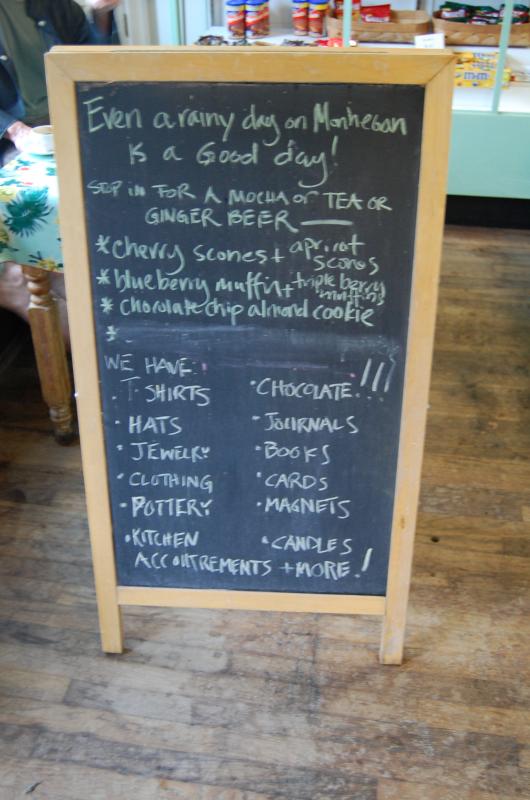 Even a rainy day on Monhegan
is a Good day!
STOP IN FOR A MOCHA OR TEA OR
GINGER BEER —
*cherry scones + apricot scones
*blueberry muffin + triple berry muffins
*chocolate chip almond cookie
*
WE HAVE:
• T-SHIRTS • CHOCOLATE!!!
• HATS • JOURNALS
• JEWELRY • BOOKS
• CLOTHING • CARDS
• POTTERY • MAGNETS
• KITCHEN ACCOUTREMENTS • CANDLES
+ MORE!
m&m's